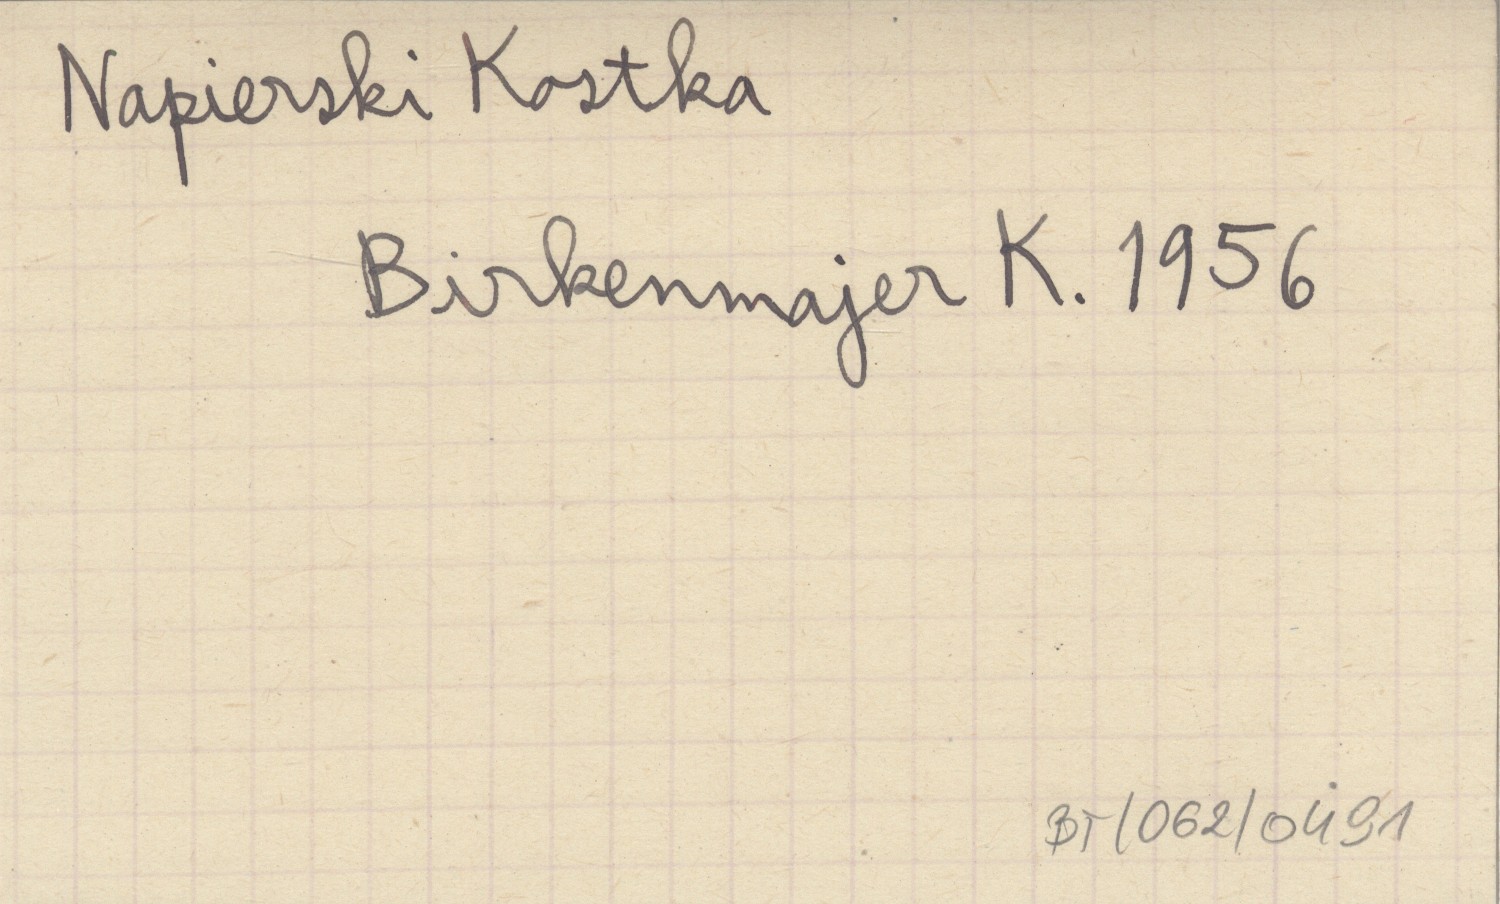 Napierski Kostka
Birkenmajer K. 1956
BT/062/0491